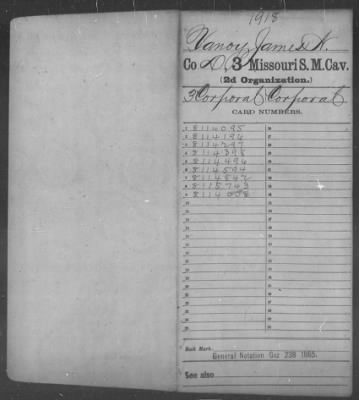 1918
Vanoy, James N.
Co D, 3 Missouri S. M. Cav.
(2d Organization.)
3 Corporal Corporal
CARD NUMBERS.
8114095
8114196
8114297
8114398
8114496
8114594
8114842
8115743
8114008
Book Mark
General Notation Caz 238 1865.
See also